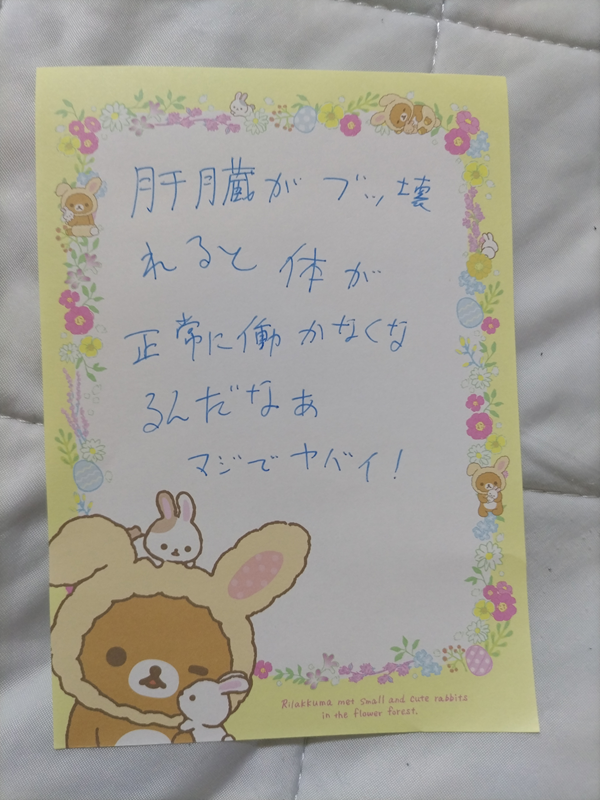 肝臓がブッ壊
れると体が
正常に働かなくな
るんだなぁ
マジでヤバイ!
Rilakkuma met small and cute rabbits
in the flower forest.